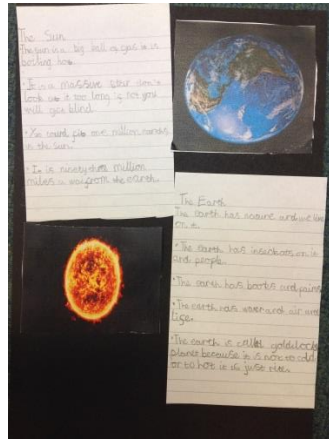 The Sun
The sun is a big ball of gas it is
boiling hot.
• It is a massive star don't
look at it too long if not you
will get blind
• You could fit one million
in the sun.
• It is ninety three million
miles away from the earth.
The Earth
The earth has nature and we live
on it.
• The earth has insects on it
and people.
• The earth has books and paint
• The earth has water and air and
life.
• The earth is called goldilocks
planet because it is not to cold
or to hot it is just rite.